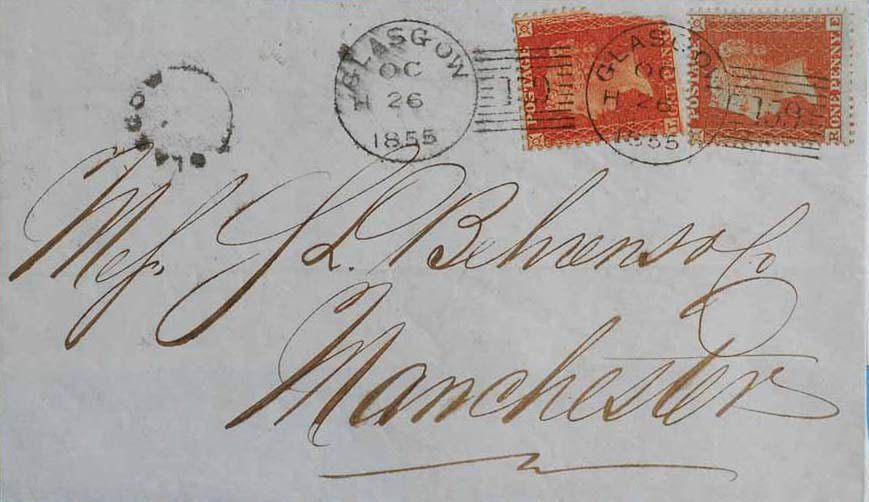 GLASGOW
OC
H 26
1855
GLASGOW
OC
H 26
1855
159
POSTAGE
POSTAGE
ONE PENNY
R E
Mess. S L. Behrens & Co
Manchester